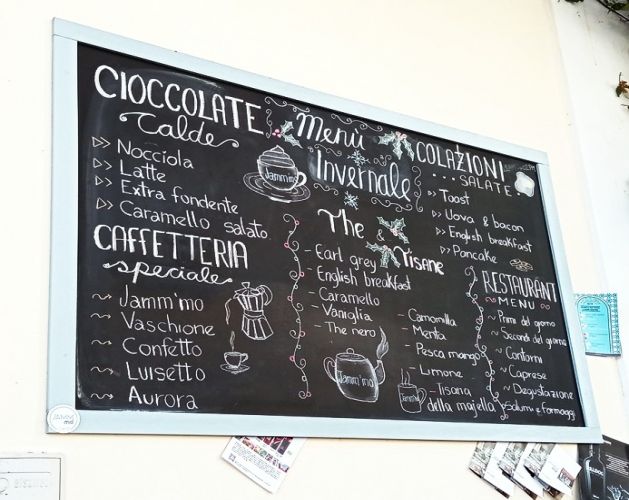 CIOCCOLATE
Calde
Nocciola
Latte
Extra fondente
Caramello salato
CAFFETTERIA
speciale
Jamm'mo
Vaschione
Confetto
Luisetto
Aurora
Menù
Invernale
Jamm'mo
The & Tisane
Earl grey
English breakfast
Caramello
Vaniglia
The nero
Camomilla
Menta
Pesca mango
Limone
Tisana
della majella
Jamm'mo
COLAZIONI
SALATE
Toast
Uova & bacon
English breakfast
Pancake
RESTAURANT
MENU
Primi del giorno
Secondi del giorno
Contorni
Caprese
Degustazione
Salumi e formaggi